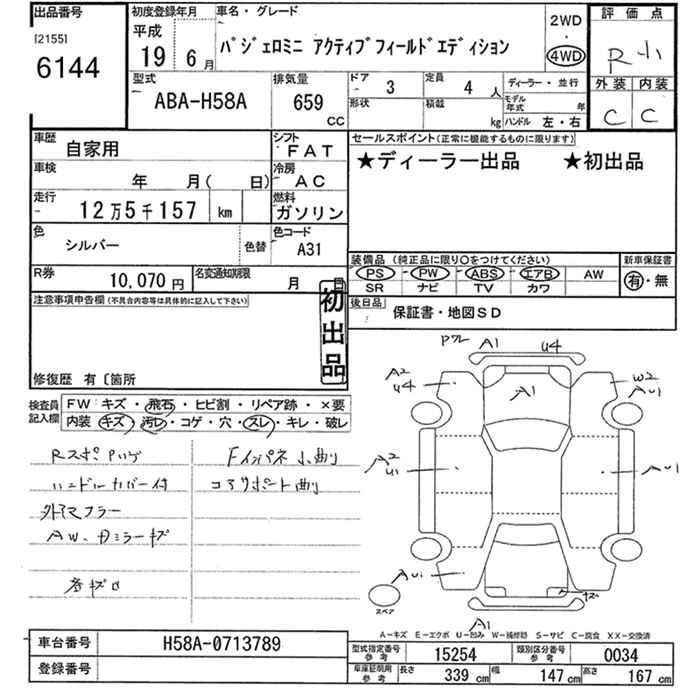 出品番号
[2155]
6144
初度登録年月
平成
19 6 月
車名・グレード
パジェロミニ アクティブフィールドエディション
2WD
4WD
評価点
R 小
外装 内装
C C
型式
ABA-H58A
排気量
659
CC
ドア 3
形状
定員 4 人
積載 kg
ディーラー・並行
モデル年式 年
ハンドル 左・右
車歴
自家用
シフト
FAT
車検
年 月( 日)
冷房
AC
走行
12万5千157 km
燃料
ガソリン
色
シルバー
色替
色コード
A31
R券
10,070 円
名変通知期限
月 日
セールスポイント(正常に機能するものに限ります)
★ディーラー出品 ★初出品
装備品(純正品に限り〇をつけてください)
PS PW ABS エアB AW
SR ナビ TV カワ
新車保証書
有・無
後日品
保証書・地図SD
注意事項申告欄(不具合内容等は具体的に記入して下さい)
初出品
修復歴 有〔箇所
検査員記入欄
FW キズ・飛石・ヒビ割・リペア跡・×要
内装 キズ・汚レ・コゲ・穴・スレ・キレ・破レ
ハンドルカバー付
外マフラー
AW、ドミラーキズ
Fインパネ小曲り
コアサポート曲り
A1 U4
A1
A2
U4
W2
AU1
A2
U1
AU1
AU1
キズ
スペア
A1
A-キズ E-エクボ U-凹み W-補修跡 S-サビ C-腐食 XX-交換済
車台番号
H58A-0713789
登録番号
型式指定番号
参考
15254
類別区分番号
参考
0034
車庫証明用
参考
長さ 339 cm 幅 147 cm 高さ 167 cm